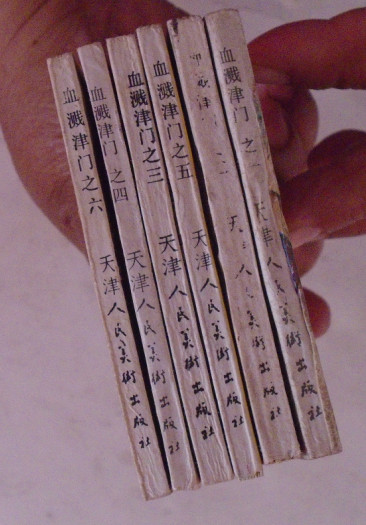 血溅津门之六 天津人民美術出版社
血溅津门之四 天津人民美術出版社
血溅津门之三 天津人民美術出版社
血溅津门之五 天津人民美術出版社
津 天 人民美術出版社
血溅津门之 天津人民美術出版社